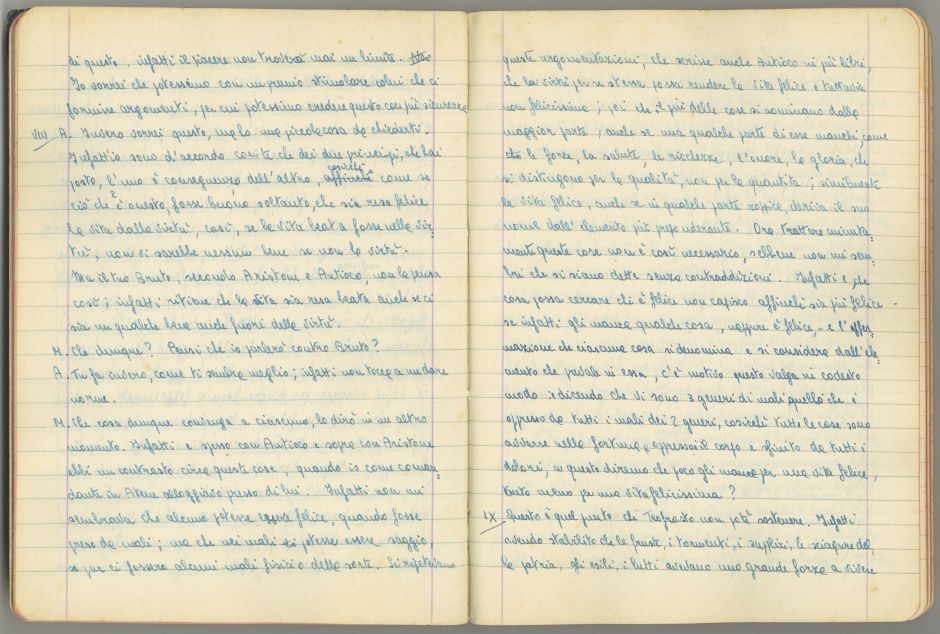 di questo, infatti il piacere non troverà mai un limite.
Io vorrei che potessimo con un premio stimolare colui che ci
fornisse argomenti, per cui potessimo credere questo con più sicurezza
VIII A. Invero vorrei questo, voglio una piccola cosa da chiederti.
Infatti io sono d'accordo con te che dei due principi, che hai
posto, l'uno è conseguenza dell'altro, cosicché come se
ciò che è onesto, fosse buono soltanto, che sia resa felice
la vita dalla virtù, così, se la vita beata fosse nella vir-
tù, non vi sarebbe nessun bene se non la virtù.
Ma il tuo Bruto, secondo Aristone e Antioco, non la pensa
così; infatti ritiene che la vita sia resa beata, anche se ci
sia un qualche bene anche fuori della virtù.
M. Che dunque? Pensi che io parlerò contro Bruto?
A. Tu fa invero, come ti sembra meglio; infatti non tocca a me dare
norme.
M. Che cosa dunque convenga a ciascuno, lo dirò in un altro
momento. Infatti e spesso con Antioco e sopra con Aristone
ebbi un contrasto circa queste cose, quando io come coman-
dante in Atene alloggiavo presso di lui. Infatti non mi
sembrava che alcuno potesse essere felice, quando fosse
preso da mali; ma che nei mali potesse essere saggio,
se pur ci fossero alcuni mali fisici o della sorte. Si ripetevano
queste argomentazioni, che scrisse anche Antioco in più libri,
che la virtù per se stessa possa rendere la vita felice e tuttavia
non felicissima; poi che il più delle cose si nominano dalla
maggior parte, anche se una qualche parte di esse manchi, come
le forze, la salute, le ricchezze, l'onore, la gloria, che
si distinguono per la qualità, non per la quantità; similmente
la vita felice, anche se in qualche parte zoppica, deriva il suo
nome dall'elemento più preponderante. Ora trattare minuta-
mente queste cose non è così necessario, sebbene non mi sem-
bri che si siano dette senza contraddizioni. Infatti e che
cosa possa cercare chi è felice non capisco affinché sia più felice.
se infatti gli manca qualche cosa, neppure è felice, e l'affer-
mazione che ciascuna cosa si denomina e si considera dall'ele-
mento che prevale in essa, c'è motivo questo valga in codesto
modo: dicendo che vi sono 3 generi di mali quello che è
oppresso da tutti i mali dei 2 generi, cosicché tutte le cose siano
avverse nella fortuna e oppresso il corpo e sfinito da tutti i
dolori, a questo diremo che poco gli manca per una vita felice,
tanto meno per una vita felicissima?
IX Questo è quel punto che Teofrasto non poté sostenere. Infatti
avendo stabilito che le fruste, i tormenti, i supplizi, le sciagure del-
la patria, gli esili, i lutti avevano una grande forza a vivere